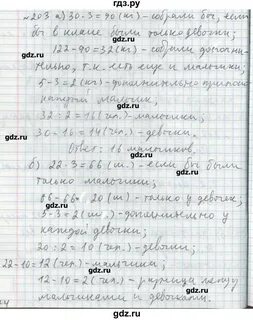 № 203 а) 30·3=90 (кг) - собрали бы, если
бы в классе были только девочки;
122-90=32 (кг) - собрали дополни-
тельно, т.к. есть еще и мальчики;
5-3=2 (кг) - дополнительно
каждый мальчик;
32:2=16 (чел.) - мальчики;
30-16=14 (чел.) - девочки.
Ответ: 16 мальчиков.
б) 22·3=66 (ш.) - если бы были
только мальчики;
86-66= 20 (ш) - только у девочек;
5-3=2 (ш.) - дополнительно у
каждой девочки;
20:2=10 (чел.) - девочки;
22-10=12 (чел.) - мальчики;
12-10=2 (чел.) - разница между
мальчиками и девочками.
gdz.ru
gdz.ru
gdz.ru
gdz.ru
gdz.ru
gdz.ru
gdz.ru
gdz.ru
gdz.ru
gdz.ru